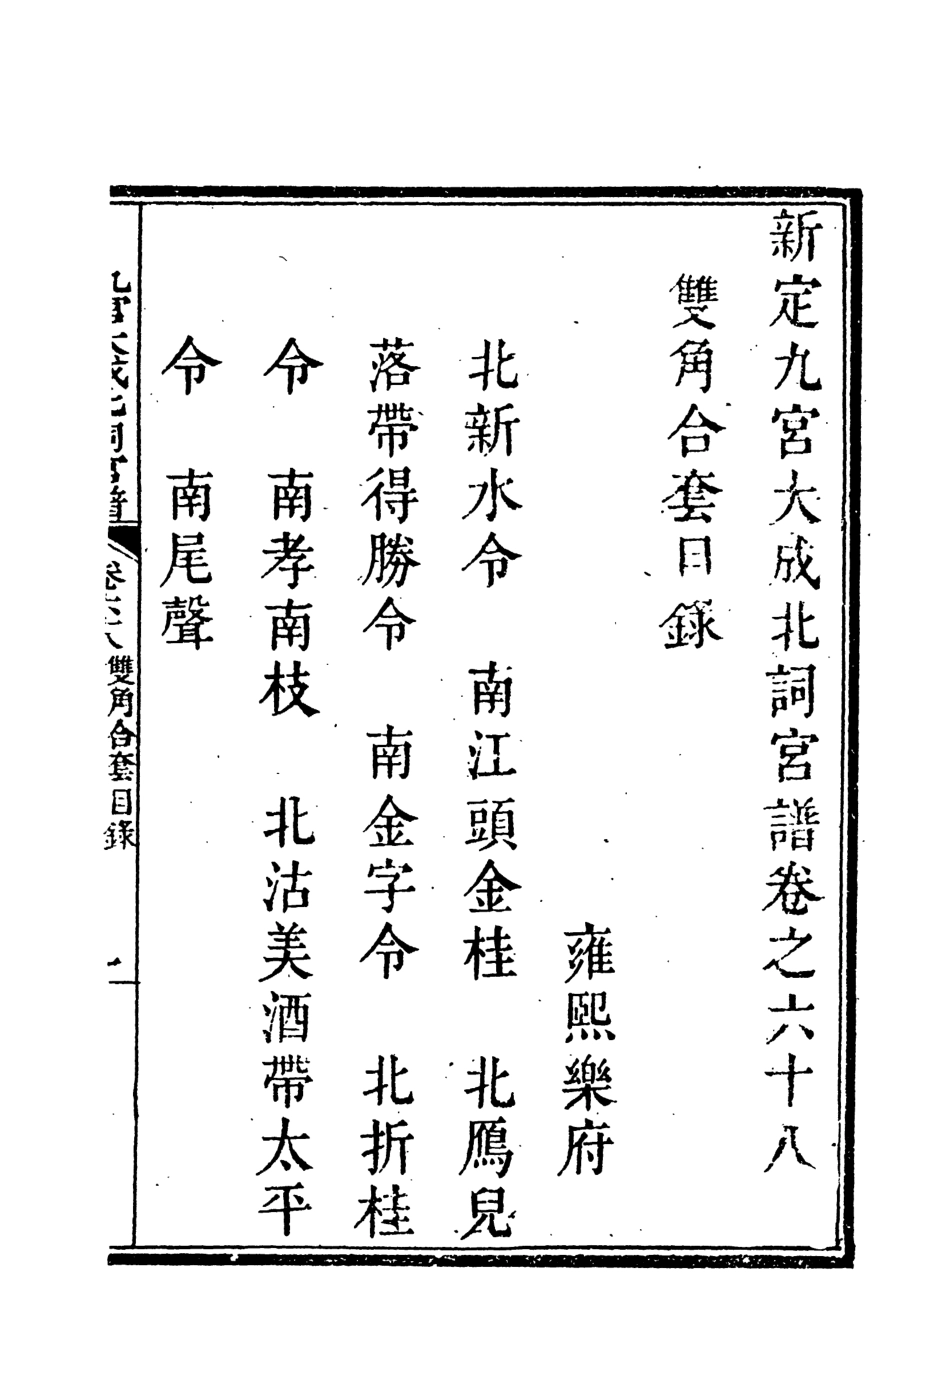 新定九宮大成北詞宮譜卷之六十八
雙角合套目錄
雍熙樂府
北新水令　南江頭金桂　北鴈兒
落帶得勝令　南金字令　北折桂
令　南孝南枝　北沽美酒帶太平
令　南尾聲
九宮大成北詞宮譜　卷六十八　雙角合套目錄　一